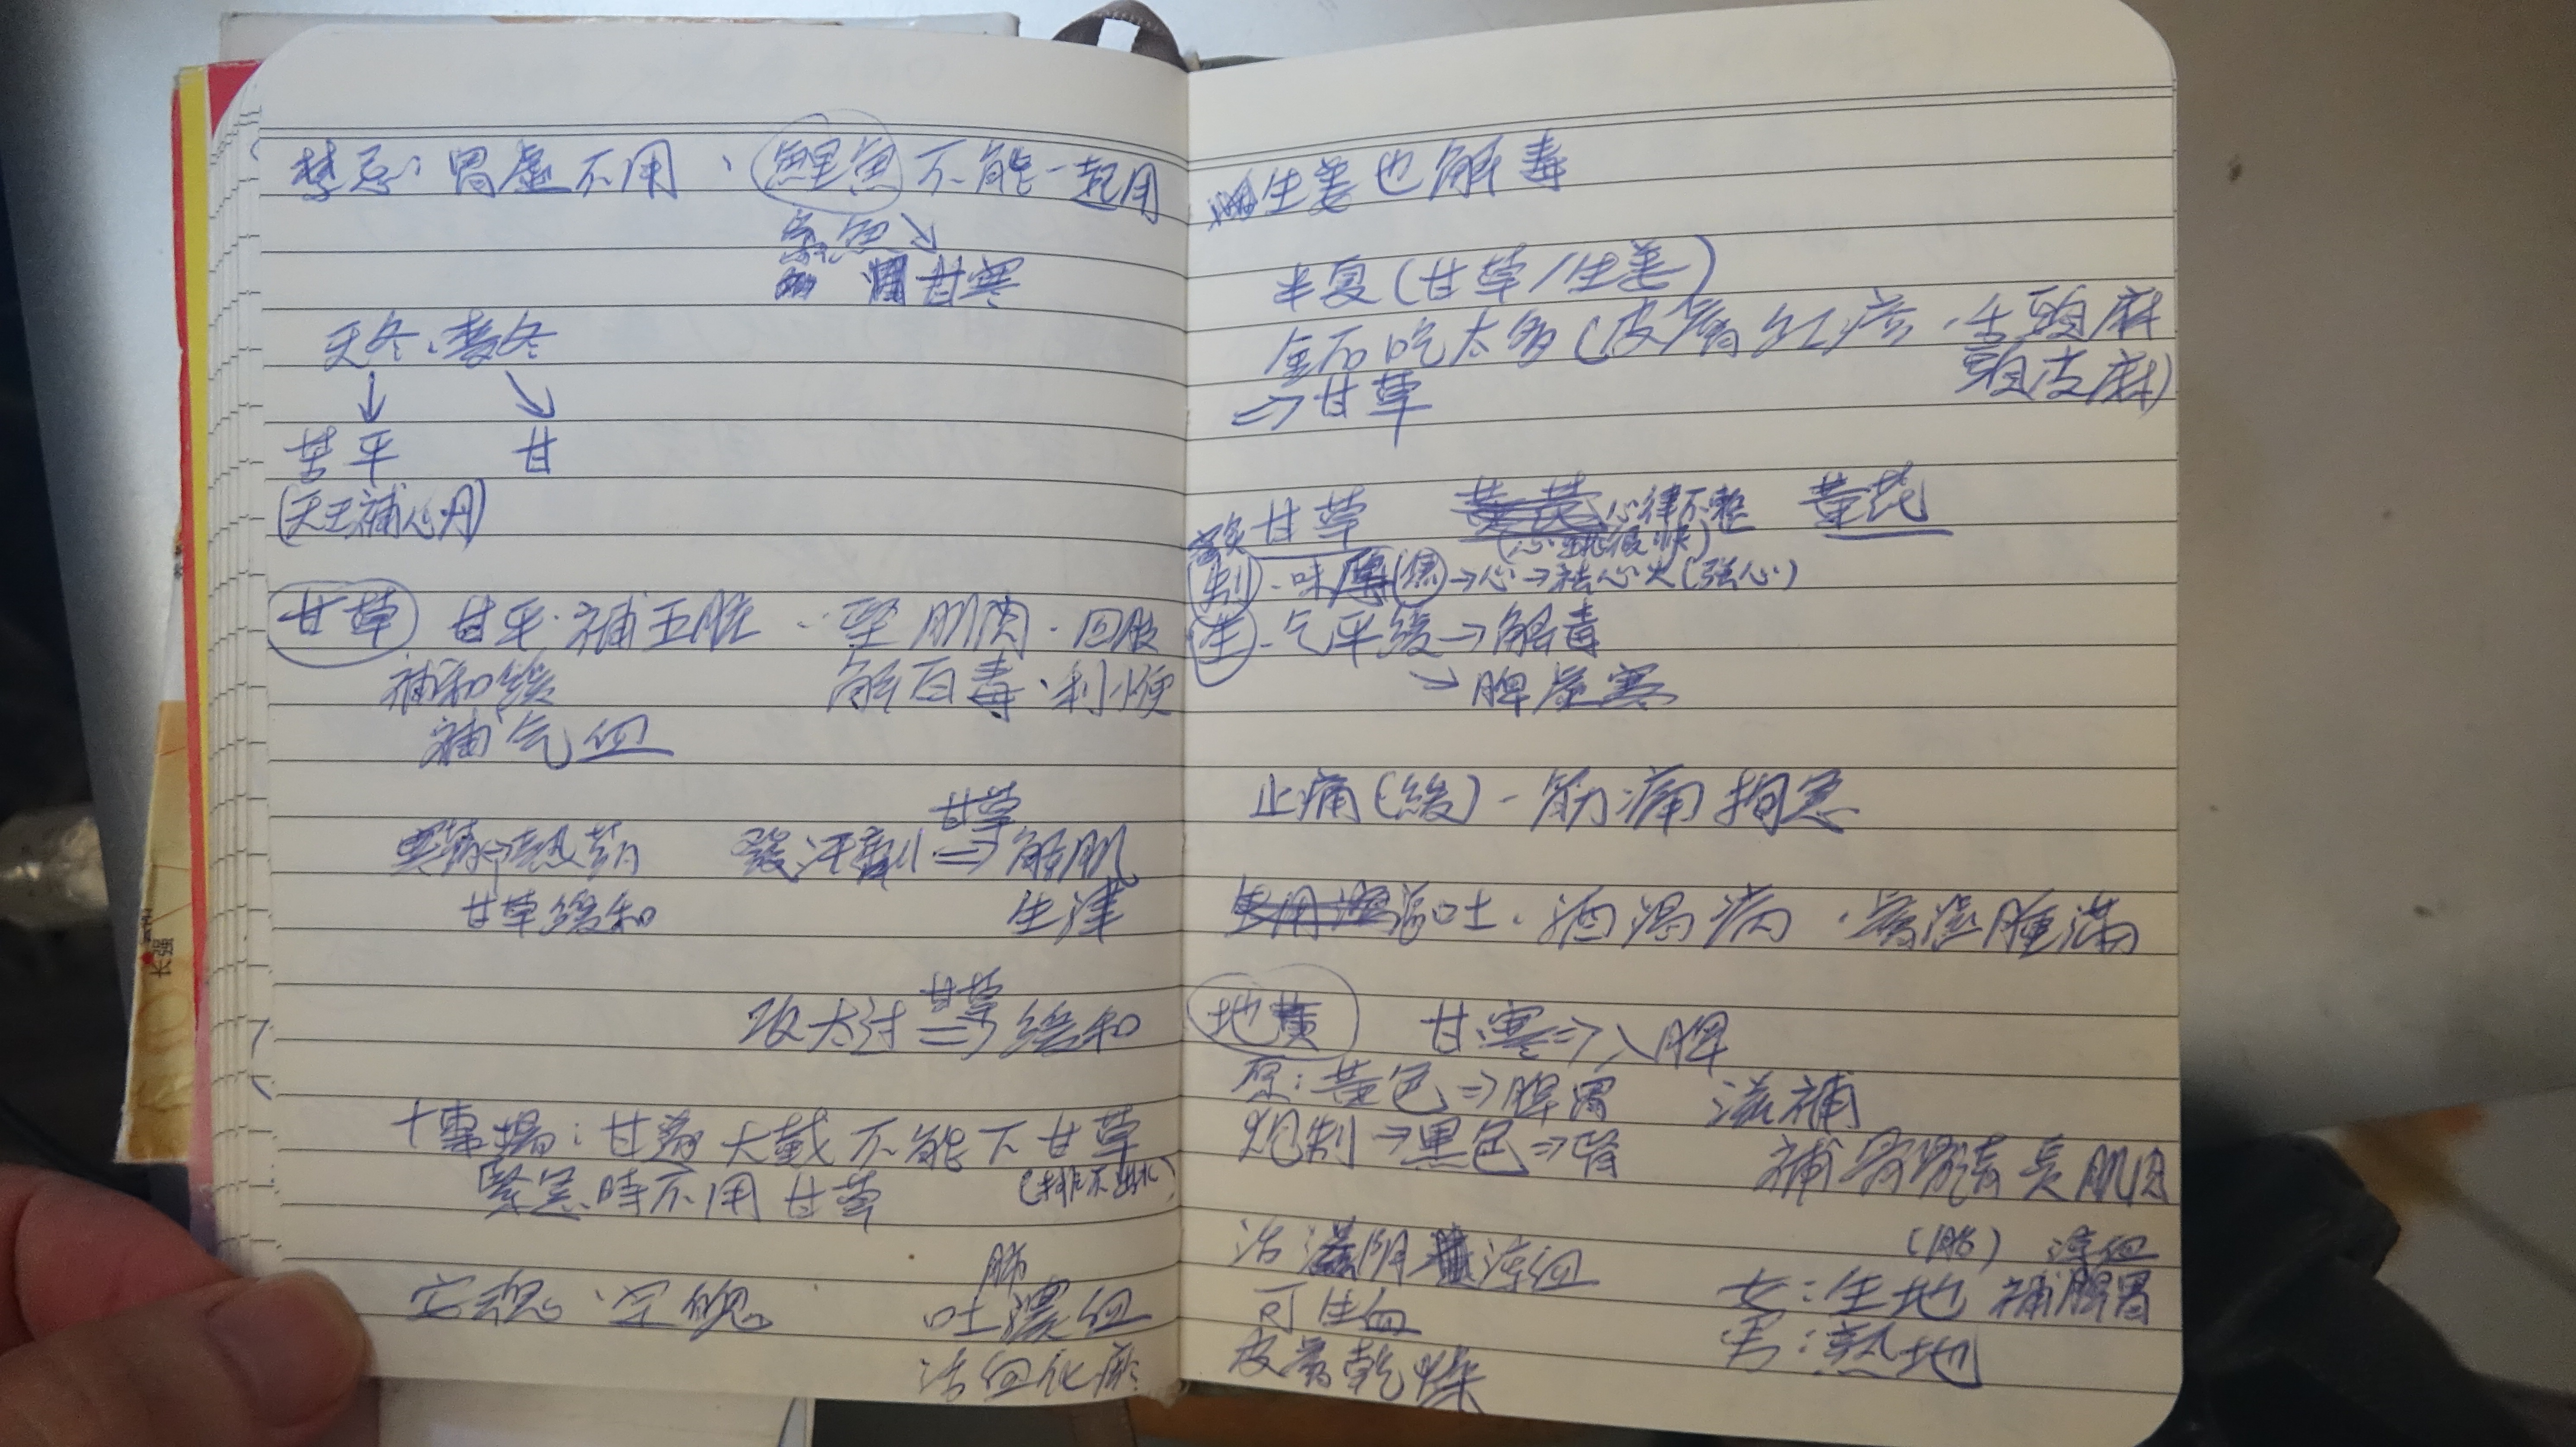 禁忌：胃虛不用、鯉魚不能一起用
魚
甘寒
天冬、麥冬
↓ ↘
苦平 甘
(天王補心丹)
甘草 甘平·補五臟、堅肌肉·
補和緩 解百毒、利小便
補气血
甘草
寒藥→熱藥 發汗劑⇒解肌
甘草緩和 生津
甘草
攻太过⇒緩和
十棗湯：甘遂大戟不能下甘草
緊急時不用甘草 (排不出水)
安魂、定魄 肺
吐濃血
活血化瘀
生姜也解毒
半夏(甘草/生姜)
金石吃太多(皮膚紅疹、舌頭麻
⇒甘草 頭皮麻)
炙甘草 心律不整 黃芪
(心跳很快)
制·味厚(焦)→心→祛心火(强心)
生·气平緩→解毒
→脾虛寒
止痛(緩)-筋痛拘急
吐、酒渴病、腫滿
地黃 甘寒⇒入脾
原：黃色⇒脾胃 滋補
炮制→黑色⇒腎 補 長肌肉
滋陰 涼血 涼血
可生血 女：生地 補脾胃
皮膚乾燥 男：熟地
长强